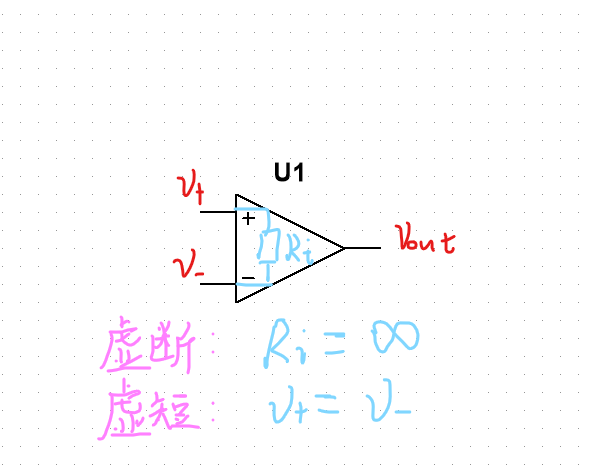 U1
V+
+
Ri
Vout
V-
-
虚断: Ri = ∞
虚短: V+ = V-